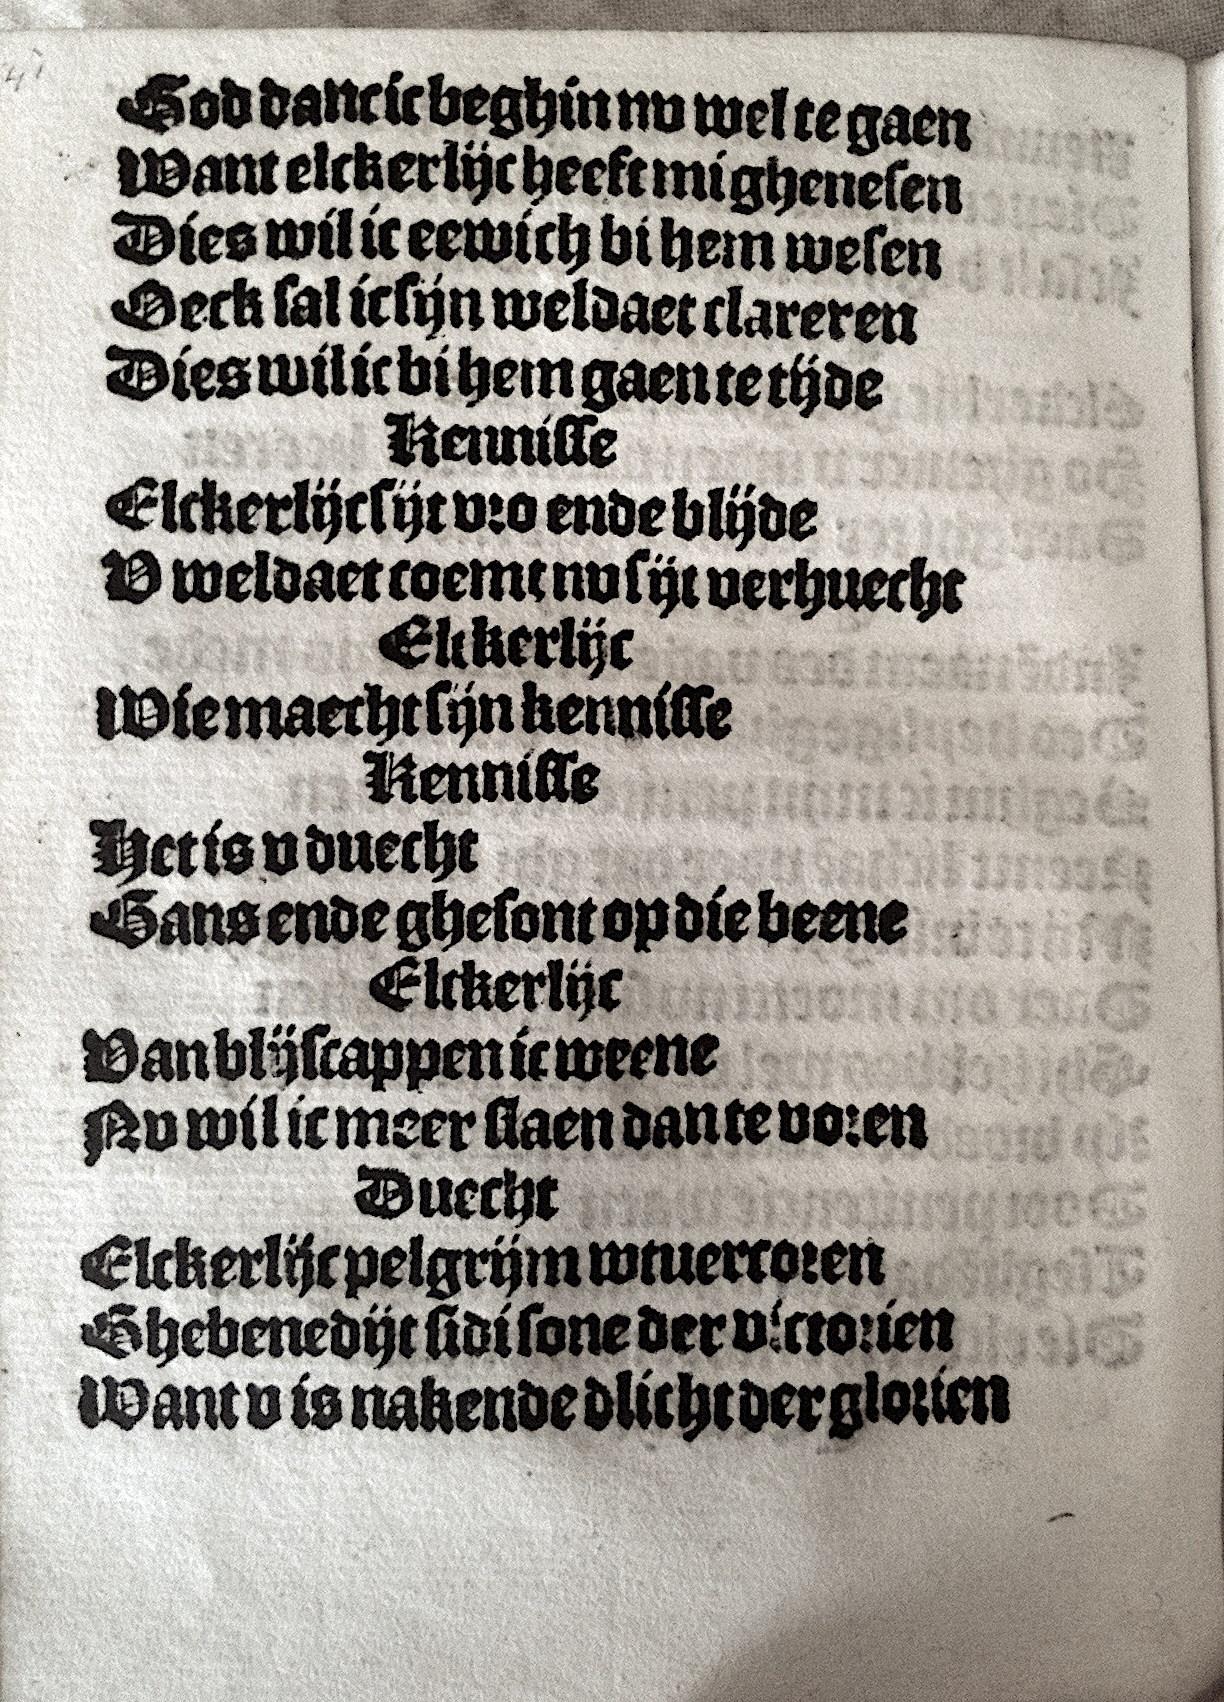 God danc ic beghin nv wel te gaen
Want elckerlijc heeft mi ghenesen
Dies wil ic eewich bi hem wesen
Oeck sal ic sijn weldaet clareren
Dies wil ic bi hem gaen te tijde
Kennisse
Elckerlijc sijt vro ende blijde
V weldaet coemt nv sijt verhuecht
Elckerlijc
Wie maecht sijn kennisse
Kennisse
Het is v duecht
Gans ende ghesont op die beene
Elckerlijc
Van blijscappen ic weene
Nv wil ic meer slaen dan te voren
Duecht
Elckerlijc pelgrijm wtuercoren
Ghebenedijt sidi sone der victorien
Want v is nakende dlicht der glorien